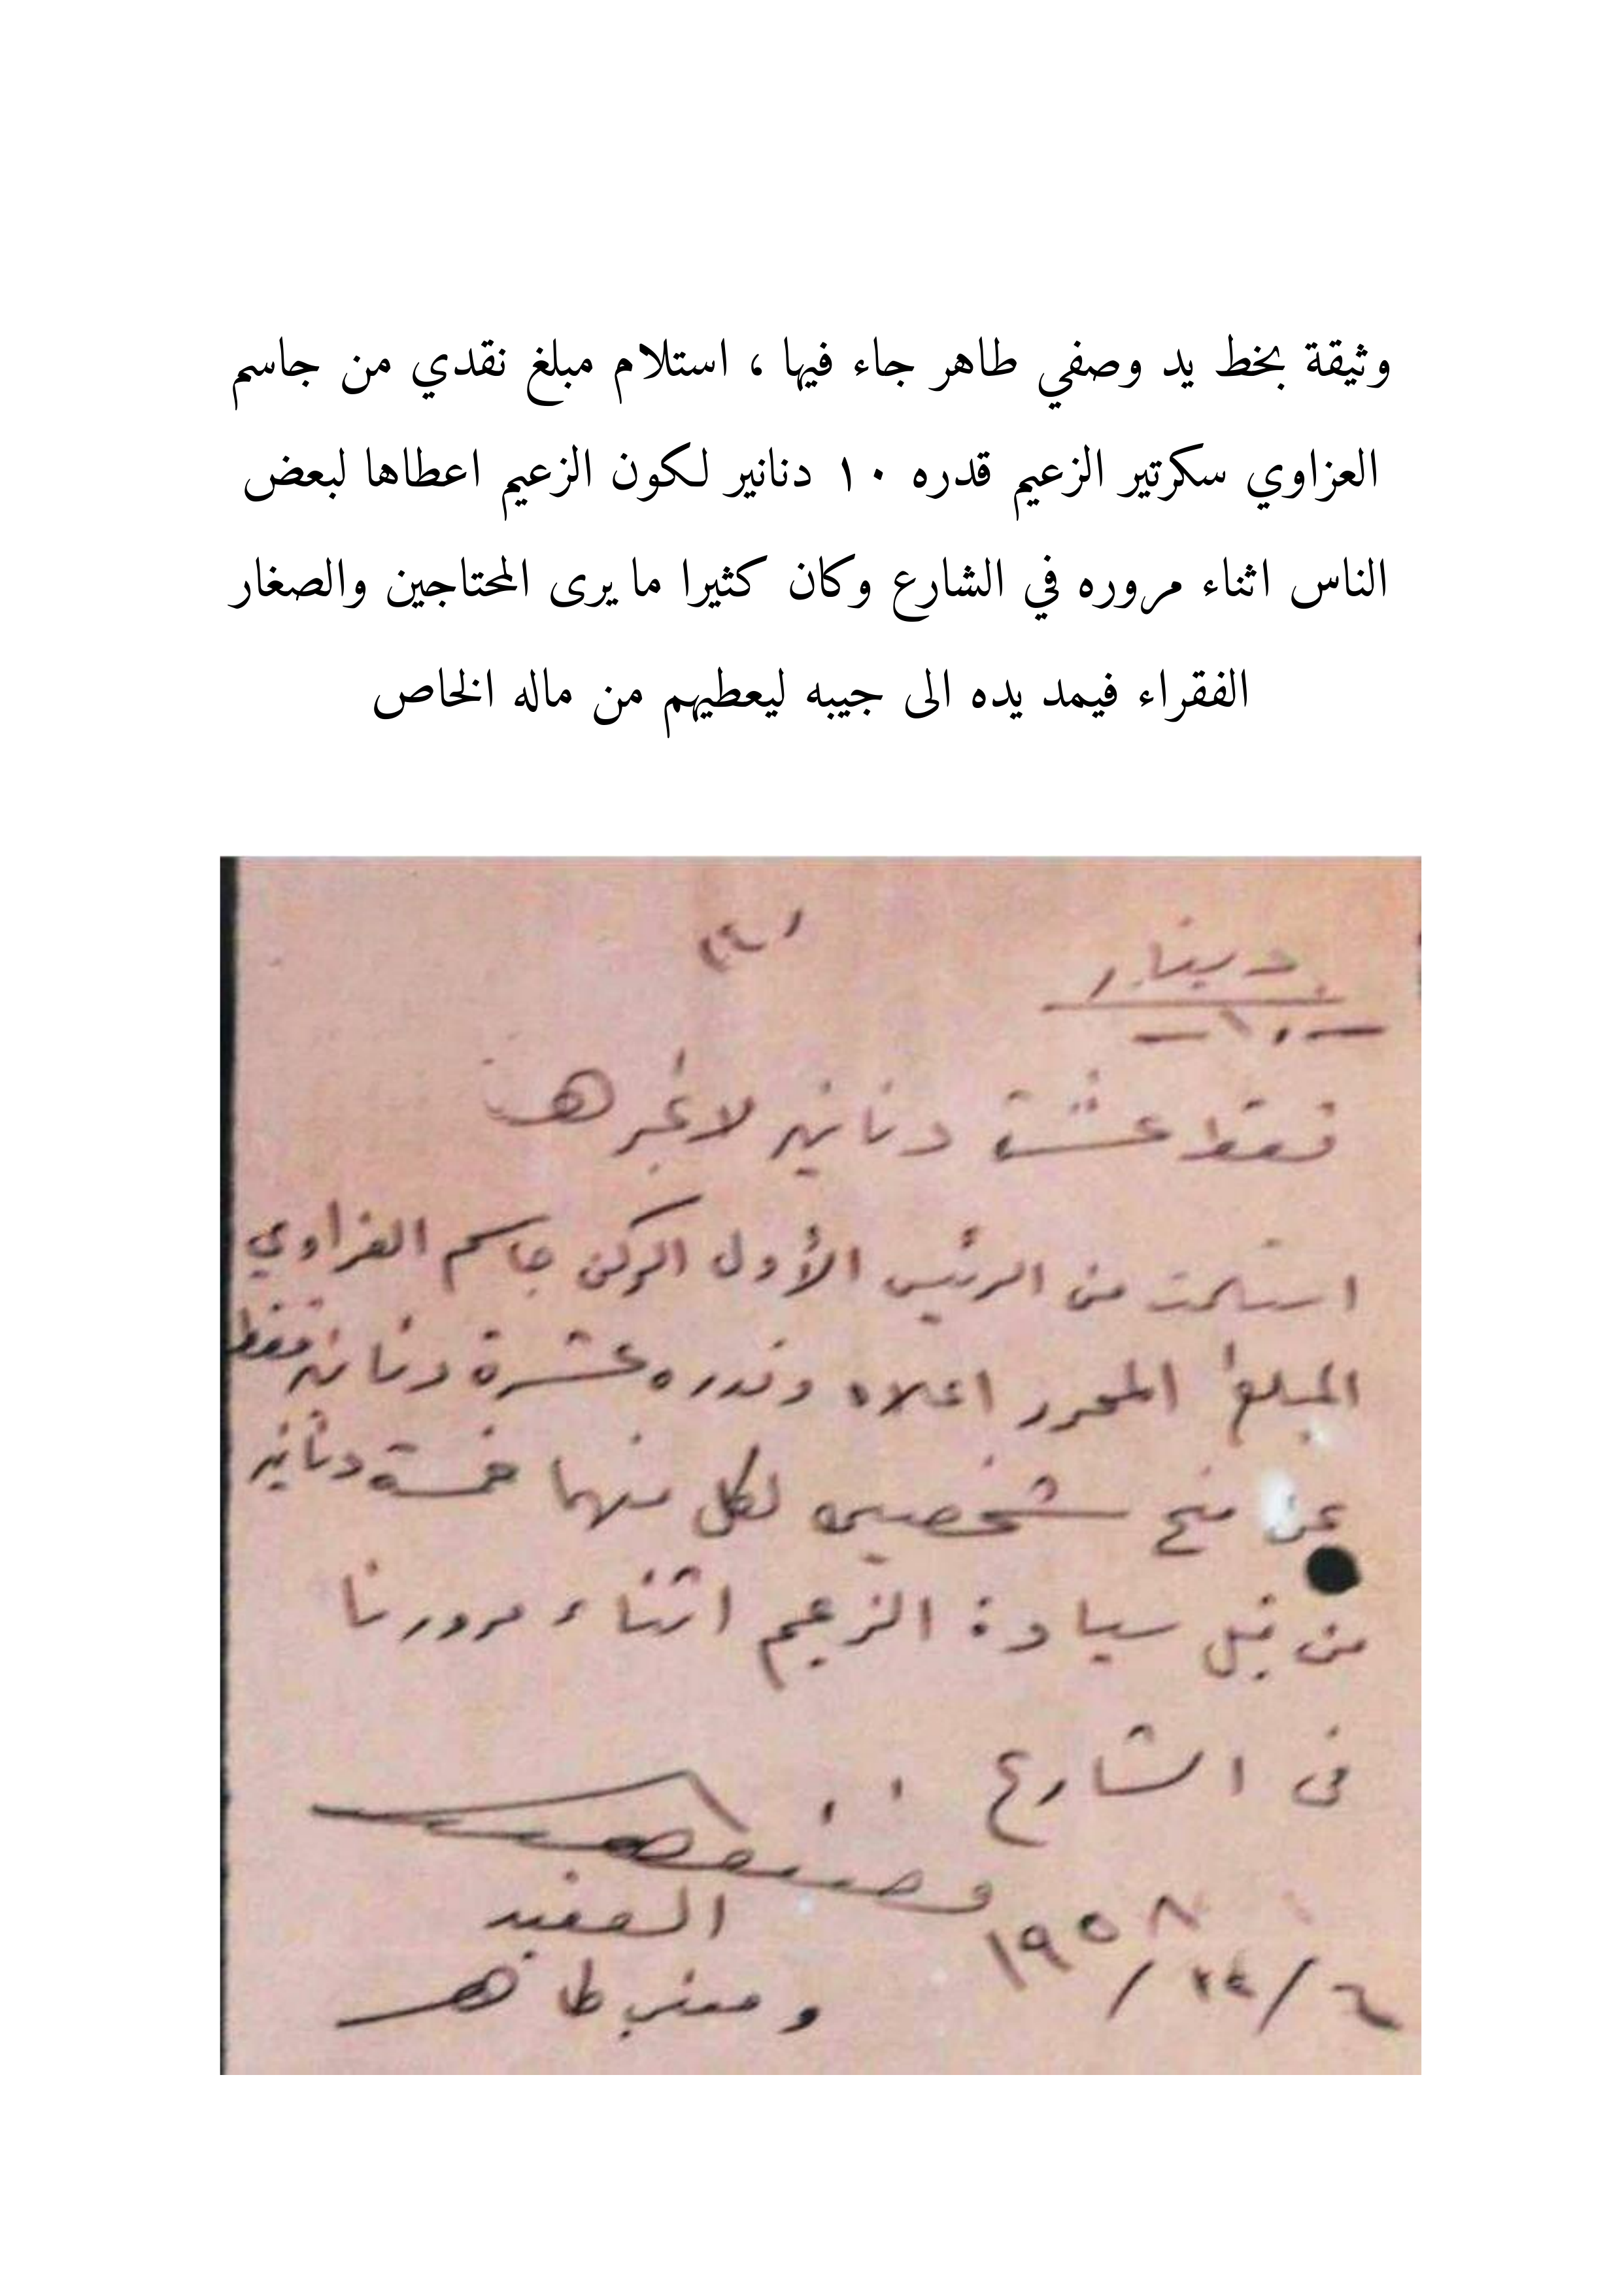 وثيقة بخط يد وصفي طاهر جاء فيها ، استلام مبلغ نقدي من جاسم
العزاوي سكرتير الزعيم قدره ١٠ دنانير لكون الزعيم اعطاها لبعض
الناس اثناء مروره في الشارع وكان كثيرا ما يرى المحتاجين والصغار
الفقراء فيمد يده الى جيبه ليعطيهم من ماله الخاص
دينار
-١٠-
فقط عشرة دنانير لا غيرها
استلمت من الرئيس الأول الركن جاسم العزاوي
المبلغ المحرر اعلاه وقدره عشرة دنانير فقط
عن منح شخصين لكل منهما خمسة دنانير
من قبل سيادة الزعيم اثناء مرورنا
في الشارع
العقيد
وصفي طاهر
١٩٥٨